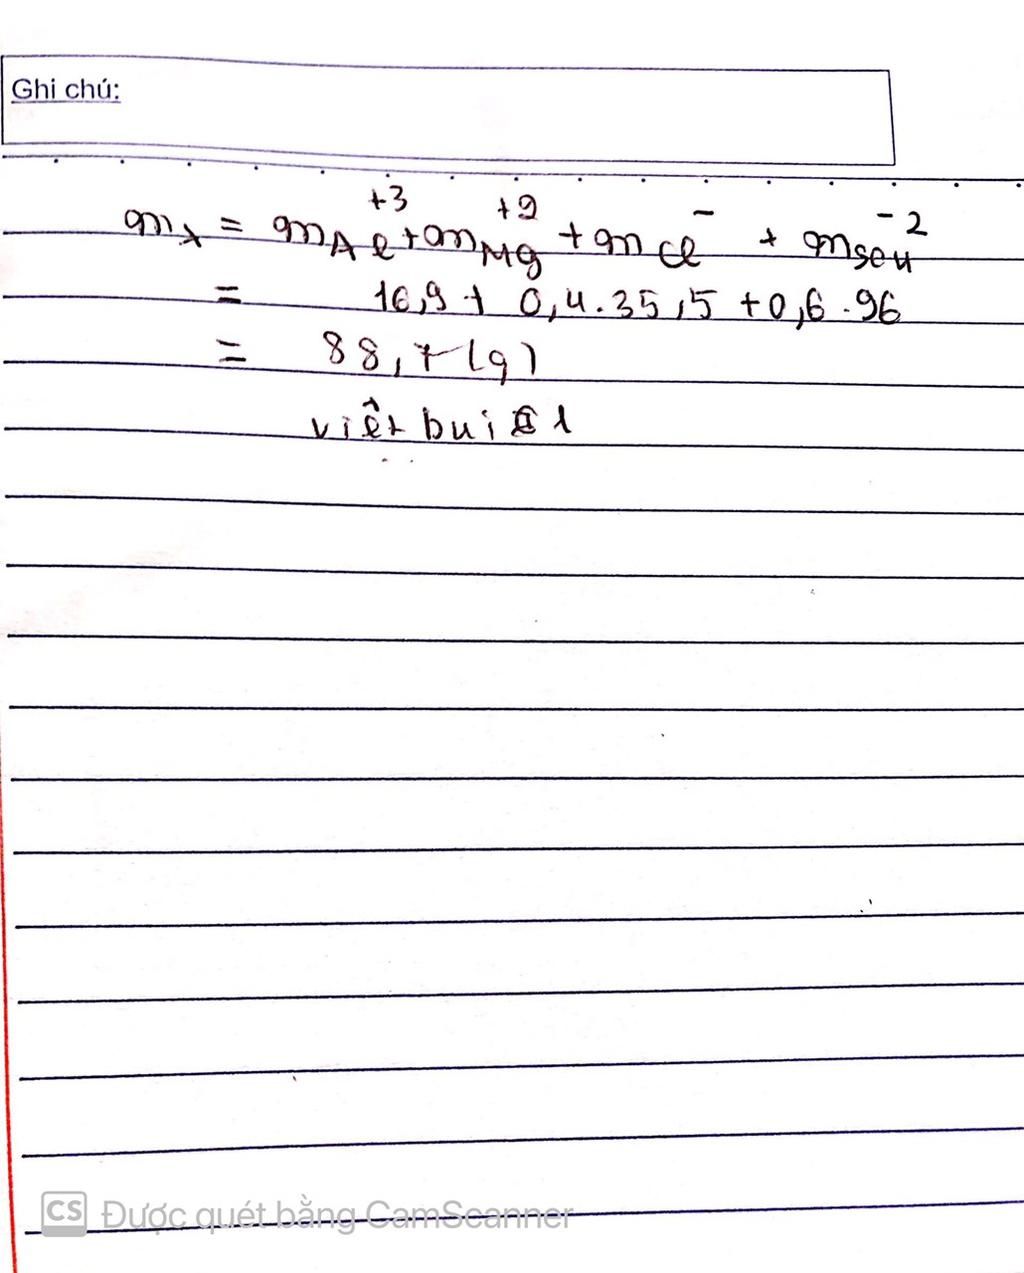 Ghi chú:
m_X = m_Al^+3 + m_Mg^+2 + m_Cl^- + m_SO4^-2
= 16,9 + 0,4.35,5 + 0,6.96
= 88,7 (g)
viết bui 1
CS Được quét bằng CamScanner